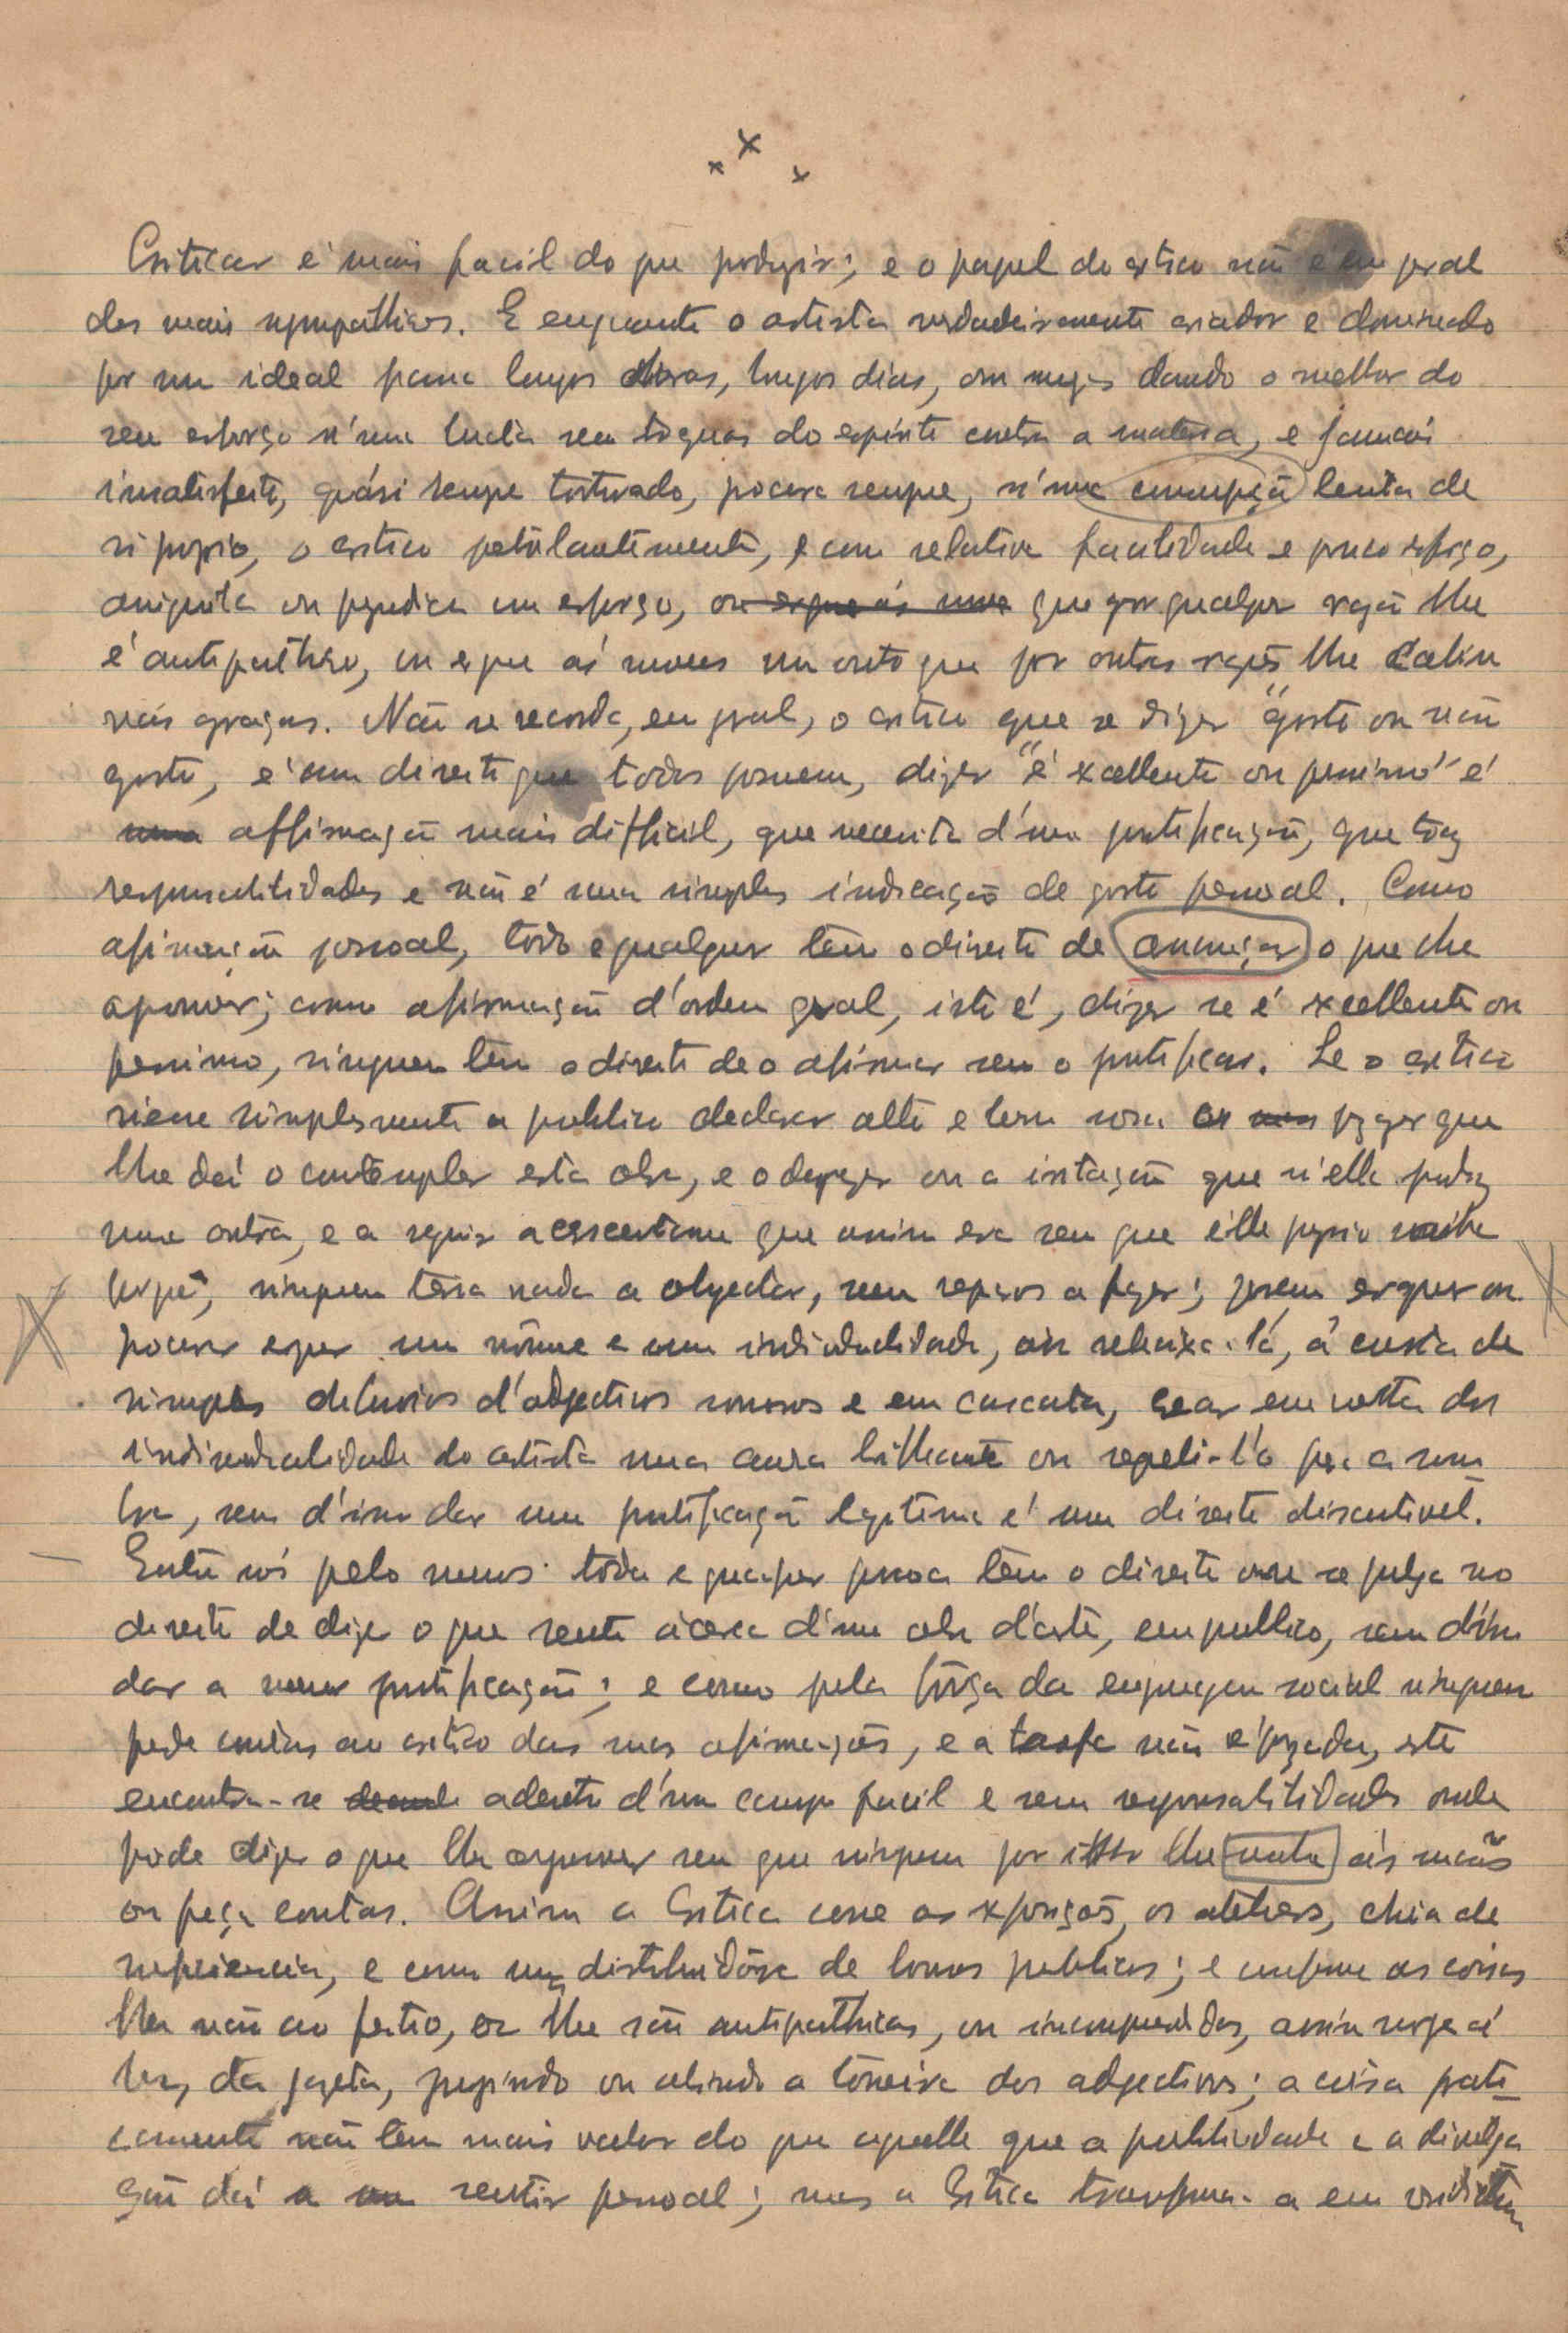 Criticar é mais facil do que produzir; e o papel do critico não é em geral
dos mais sympathicos. E enquanto o artista verdadeiramente criador e dominado
por um ideal passa longas horas, longos dias, ou mezes dando o melhor do
seu esforço n'uma lucta sem treguas do espirito contra a materia, e jamais
insatisfeito, quási sempre torturado, procura sempre, n'uma lenta de
si proprio, o critico petulantemente, e com relativa facilidade e pouco esforço,
aniquila ou prejudica um esforço, que por qualquer razão lhe
é antipathico, ou ergue ás nuvens um outro que por outras razões lhe cahiu
nas graças. Não se recorda, em geral, o critico que se dizer "gosto ou não
gosto, é um direito que todos possuem, dizer "é excellente ou pessimo" é
affirmação mais difficil, que necessita d'uma justificação, que traz
responsabilidades e não é uma simples indicação de gosto pessoal. Como
afirmação pessoal, todo e qualquer tem o direito de o que lhe
aprouver; como afirmação d'ordem geral, isto é, dizer se é excellente ou
pessimo, ninguem tem o direito de o afirmar sem o justificar. Se o critico
viesse simplesmente a publico declarar alto e bem o prazer que
lhe dá o contemplar esta obra, e o desprazer ou a irritação que n'elle produz
uma outra, e a seguir acrescentasse que assim era sem que elle proprio saiba
porquê, ninguem teria nada a objectar, nem reparos a fazer; porém erguer ou
procurar erguer um nome e uma individualidade, ou rebaixa-la, á custa de
simples deluvios d'adjectivos sonoros e em cascata, crear em volta da
individualidade do artista uma aura brilhante ou repeli-la para a som
bra, sem d'isso dar uma justificação legitima é um direito discutivel.
Entre nós pelo menos toda e qualquer pessoa tem o direito ou se julga no
direito de dizer o que sente ácerca d'uma obra d'arte, em publico, sem d'isso
dar a menor justificação; e como pela força da engrenagem social ninguem
pede contas ao critico das suas afirmações, e a tarefa não é pezada, este
encontra-se adentro d'um campo facil e sem responsabilidades onde
pode dizer o que lhe aprouver sem que ninguem por isso lhe ás mãos
ou peça contas. Assim a Critica corre as exposições, os ateliers, cheia de
suficiencia, e como uma distribuidora de louros publicos; e conforme as coisas
lhe vão ao feitio, ou lhe são antipathicas, ou incomprendidas, assim surge á
luz, da gazeta, jungindo ou abrindo a torneira dos adjectivos; a coisa prati
camente não tem mais valor do que aquelle que a publicidade e a divulga
ção dá a sentir pessoal; mas a Critica transforma-a em